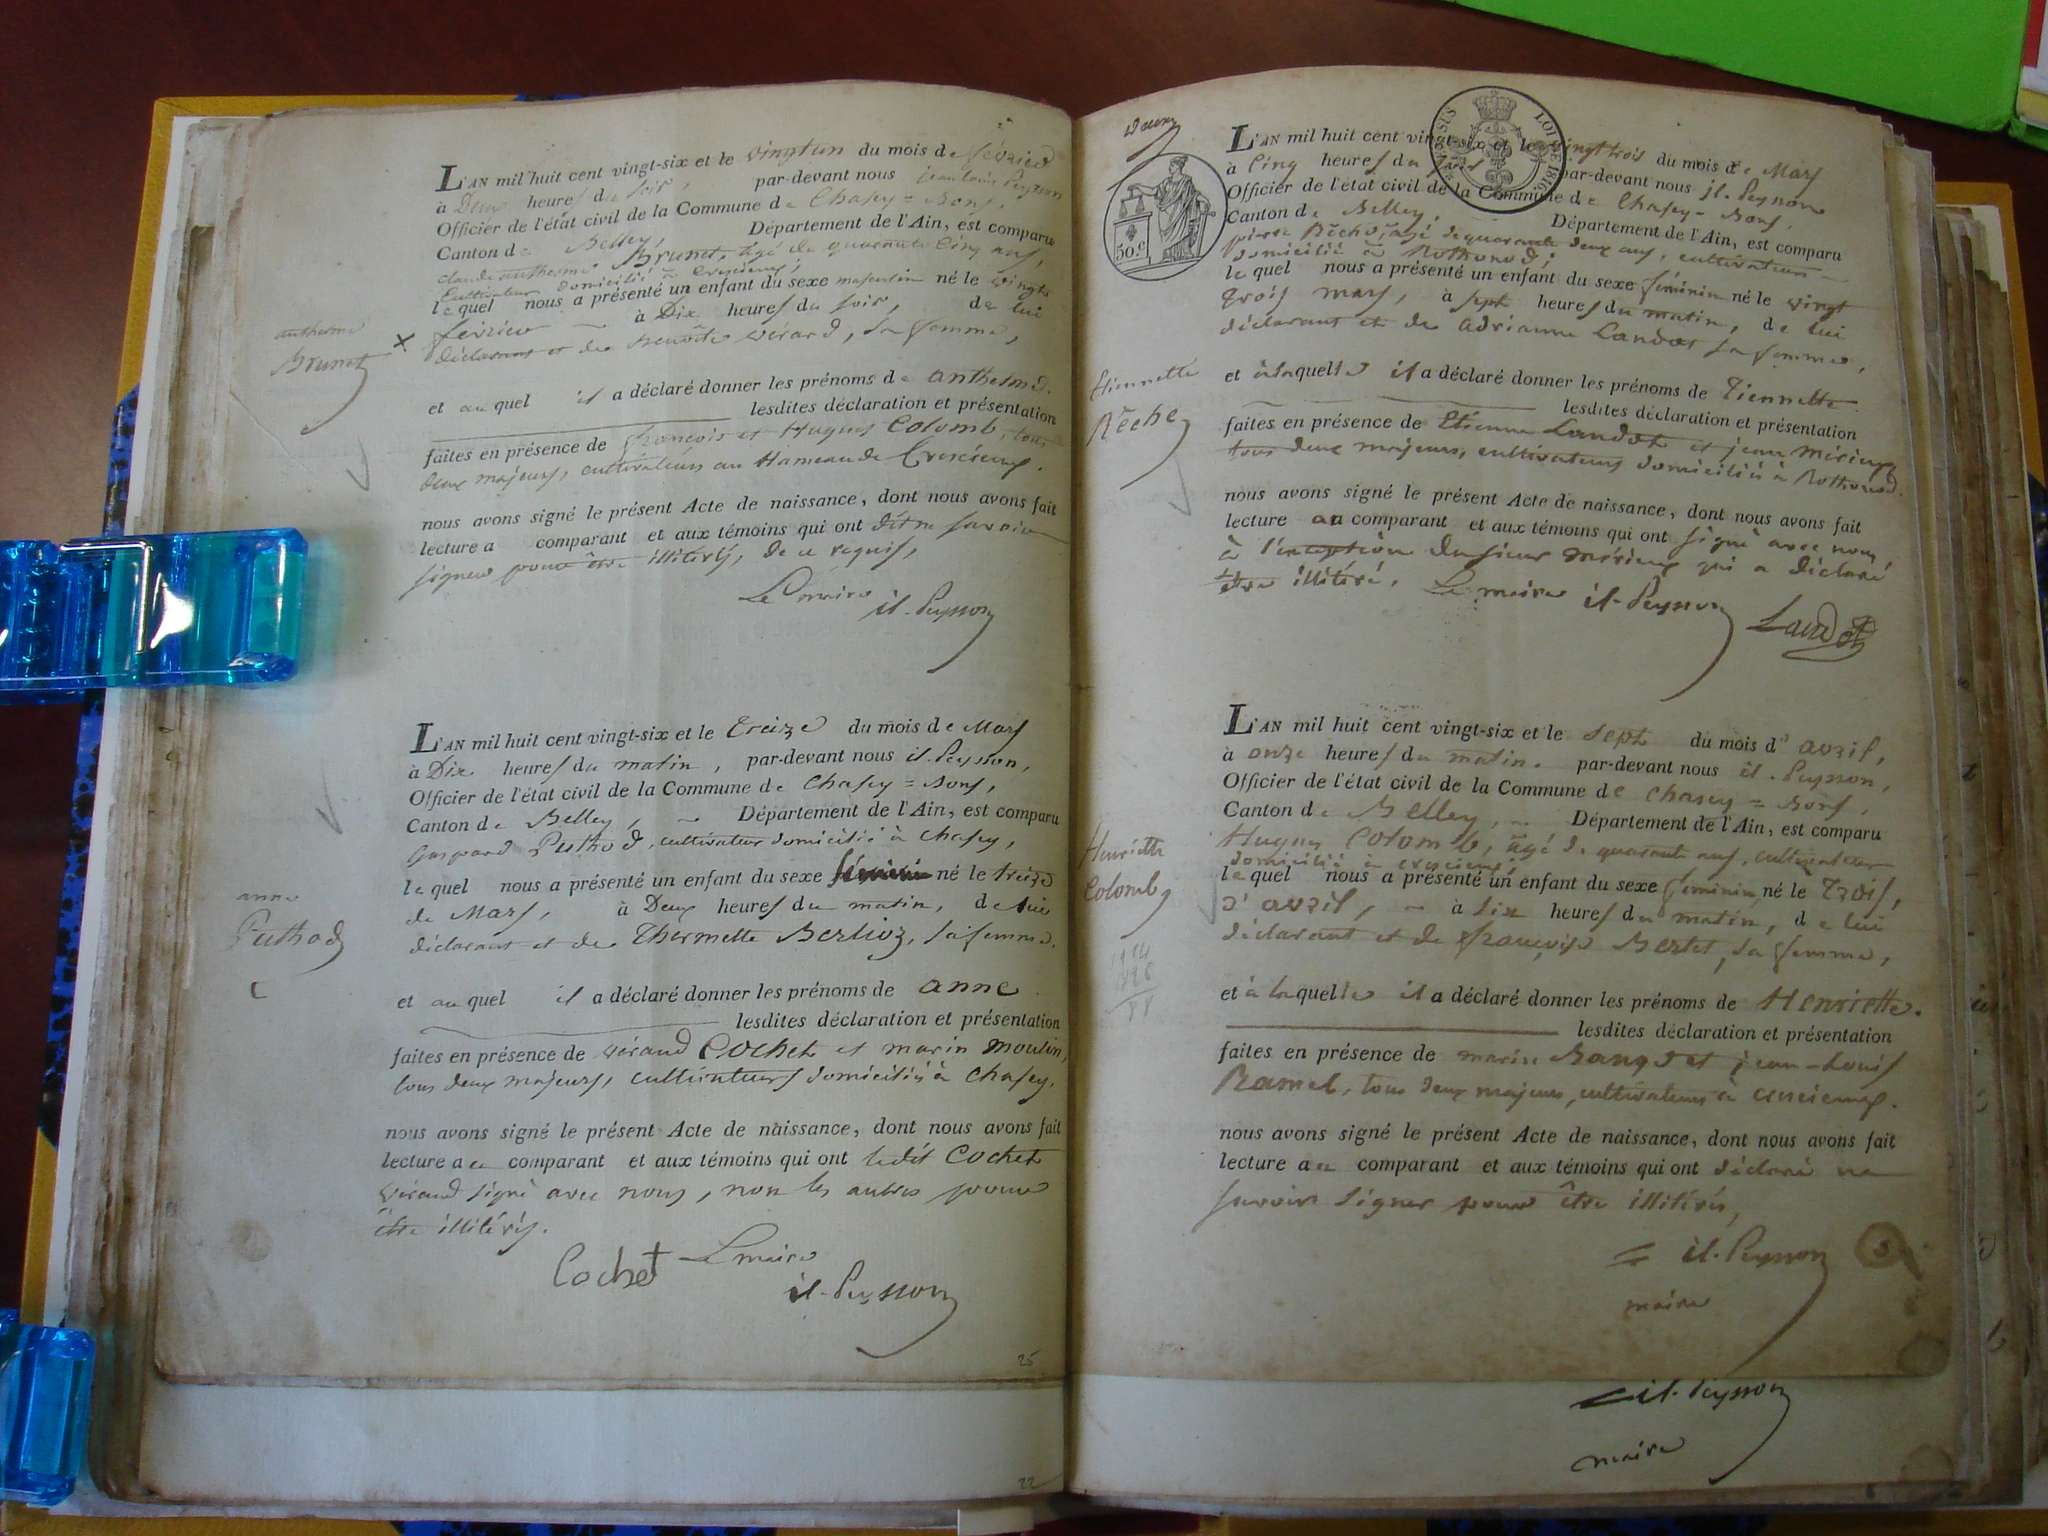 L'AN mil huit cent vingt-six et le vingtun du mois de février
à Deux heures du soir, par-devant nous jean louis Peysson
Officier de l'état civil de la Commune de Chasey=Bons,
Canton de Belley, Département de l'Ain, est comparu
claude anthelme Brunet, agé de quarante cinq ans,
Cultivateur domicilié à Crescieux,
lequel nous a présenté un enfant du sexe masculin né le vingts
février à Dix heures du soir, de lui
déclarant et de Benoîte vérard, sa femme,
anthelme
Brunet
et auquel il a déclaré donner les prénoms de anthelme.
lesdites déclaration et présentation
faites en présence de françois et Hugues Colomb, tous
deux majeurs, cultivateurs au Hameau de
nous avons signé le présent Acte de naissance, dont nous avons fait
lecture a comparant et aux témoins qui ont dit ne savoir
signer pour être illitérés, de ce requis,
Le maire jl. Peysson
L'AN mil huit cent vingt-six et le treize du mois de Mars
à Dix heures du matin, par-devant nous jl. Peysson,
Officier de l'état civil de la Commune de Chasey=Bons,
Canton de Belley, Département de l'Ain, est comparu
Gaspard Puthod, cultivateur domicilié à Chasey,
lequel nous a présenté un enfant du sexe féminin né le treize
de Mars, à Deux heures du matin, de lui
déclarant et de Thermette Berlioz, sa femme.
anne
Puthod
et auquel il a déclaré donner les prénoms de anne
lesdites déclaration et présentation
faites en présence de vérand Cochet et marin moulin,
tous deux majeurs, cultivateurs domiciliés à Chasey.
nous avons signé le présent Acte de naissance, dont nous avons fait
lecture au comparant et aux témoins qui ont ledit Cochet
vérand signé avec nous, non les autres pour
être illitérés.
Cochet Le maire
jl. Peysson
25
22
50.c
LOI DE 1816
L'AN mil huit cent vingt-six et le vingttrois du mois de Mars
à Cinq heures du soir par-devant nous jl. Peysson
Officier de l'état civil de la Commune de Chasey=Bons,
Canton de Belley, Département de l'Ain, est comparu
pierre Rêche, agé de quarante deux ans, cultivateur
domicilié à Rothonod,
lequel nous a présenté un enfant du sexe féminin né le vingt
trois mars, à sept heures du matin, de lui
déclarant et de adrianne Landot sa femme,
Etiennette
Rêche
et à laquelle il a déclaré donner les prénoms de Tiennette
lesdites déclaration et présentation
faites en présence de Etienne Landot et jean mérieux
tous deux majeurs, cultivateurs domiciliés à Rothonod.
nous avons signé le présent Acte de naissance, dont nous avons fait
lecture au comparant et aux témoins qui ont signé avec nous
à l'exception du sieur mérieux qui a déclaré
être illitéré. Le maire jl. Peysson Landot
L'AN mil huit cent vingt-six et le sept du mois d'avril,
à onze heures du matin. par-devant nous jl. Peysson,
Officier de l'état civil de la Commune de Chasey=Bons,
Canton de Belley, Département de l'Ain, est comparu
Hugues Colomb, agé de quarante ans, cultivateur
domicilié à crescieux,
lequel nous a présenté un enfant du sexe féminin né le trois,
d'avril, à six heures du matin, de lui
déclarant et de françoise Bertet, sa femme,
Henriette
Colomb
et à laquelle il a déclaré donner les prénoms de Henriette.
lesdites déclaration et présentation
faites en présence de marin et jean-Louis
Ramel, tous deux majeurs, cultivateurs à
nous avons signé le présent Acte de naissance, dont nous avons fait
lecture au comparant et aux témoins qui ont déclaré ne
savoir signer pour être illitérés,
jl. Peysson
maire
jl. Peysson
maire